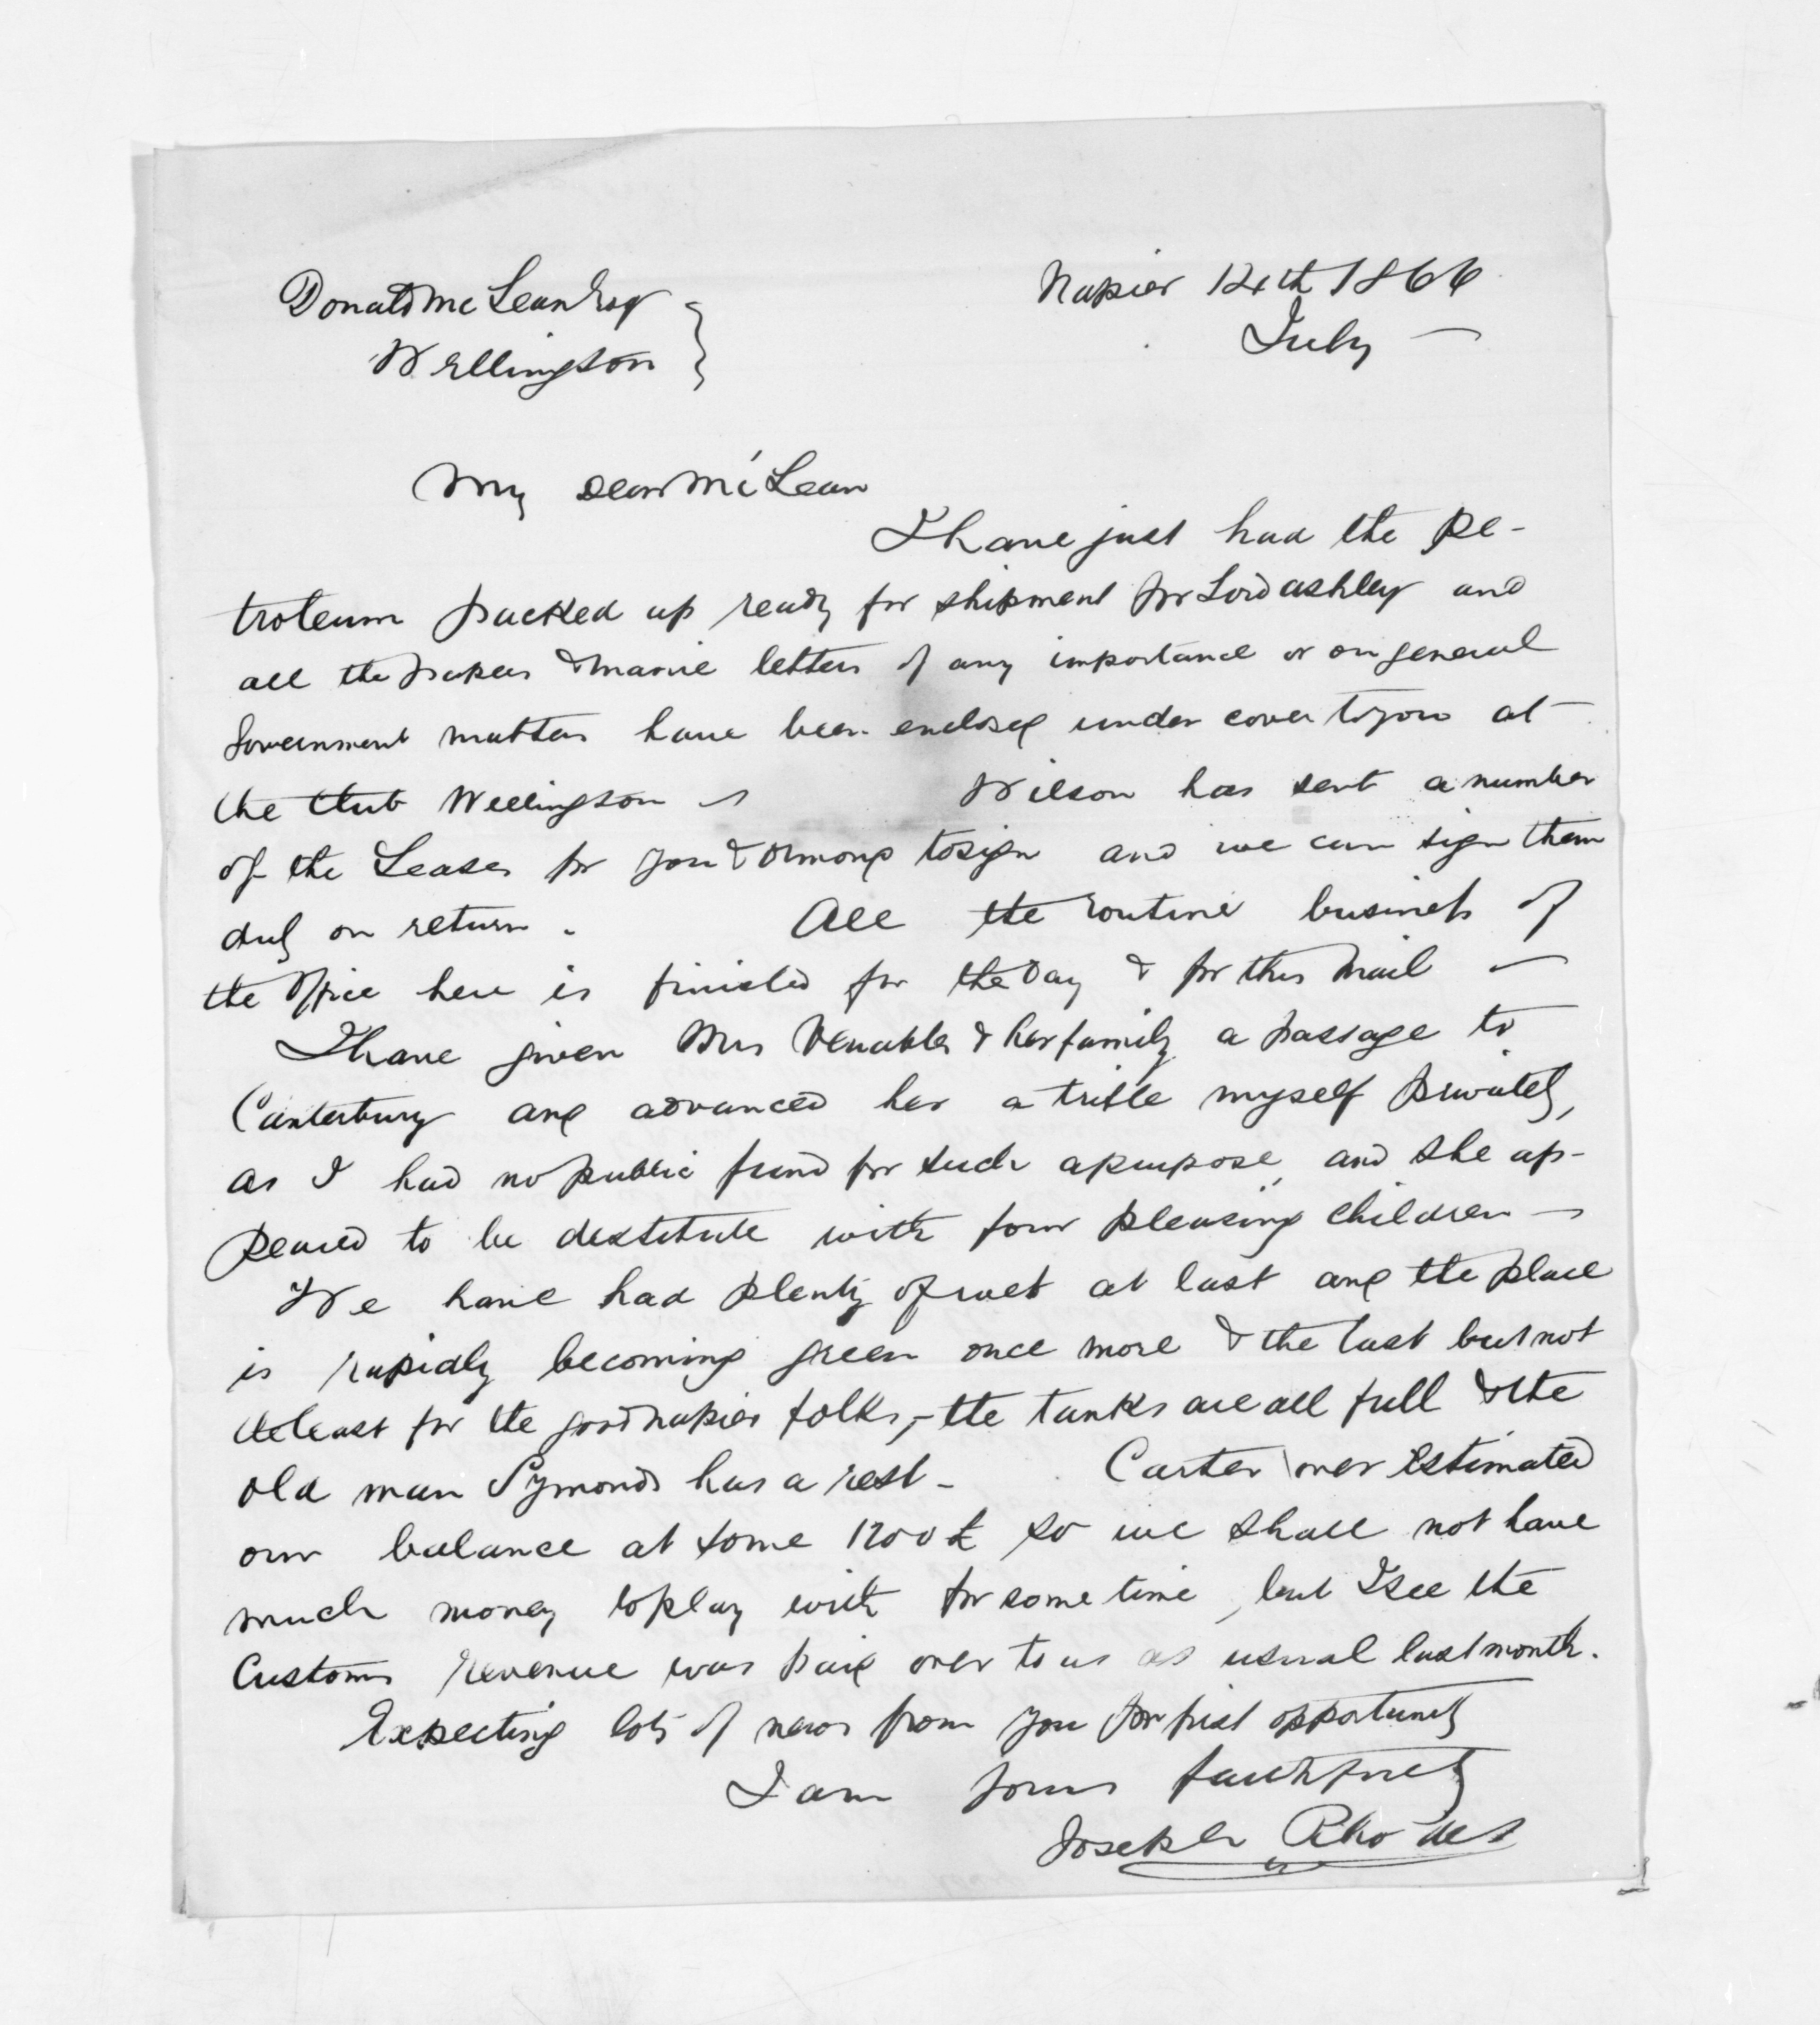 Donald McLean Esq
Wellington
Napier 12th 1866
July —
My dear McLean
I have just had the Pe-
troleum packed up ready for shipment pr Lord Ashley and
all the papers & letters of any importance or on general
Government matters have been enclosed under cover to you at
the Club Wellington —
Wilson has sent a number
of the Leases for you & Ormond to sign and we can sign them
duly on return.
All the routine business of
the Office here is finished for the day & for this Mail —
I have given Mrs Venables & her family a passage to
Canterbury and advanced her a trifle myself privately,
as I had no public fund for such a purpose, and she ap-
peared to be destitute with four pleasing children —
We have had plenty of wet at last and the place
is rapidly becoming green once more & the last but not
the least for the good Napier folks, - the tanks are all full & the
old man Symonds has a rest -
Carter over estimated
our balance at some 1200£ so we shall not have
much money to play with for some time, but I see the
Customs revenue was paid over to us as usual last month.
Expecting lots of news from you pr first opportunity
I am yours faithfully
Joseph Rhodes